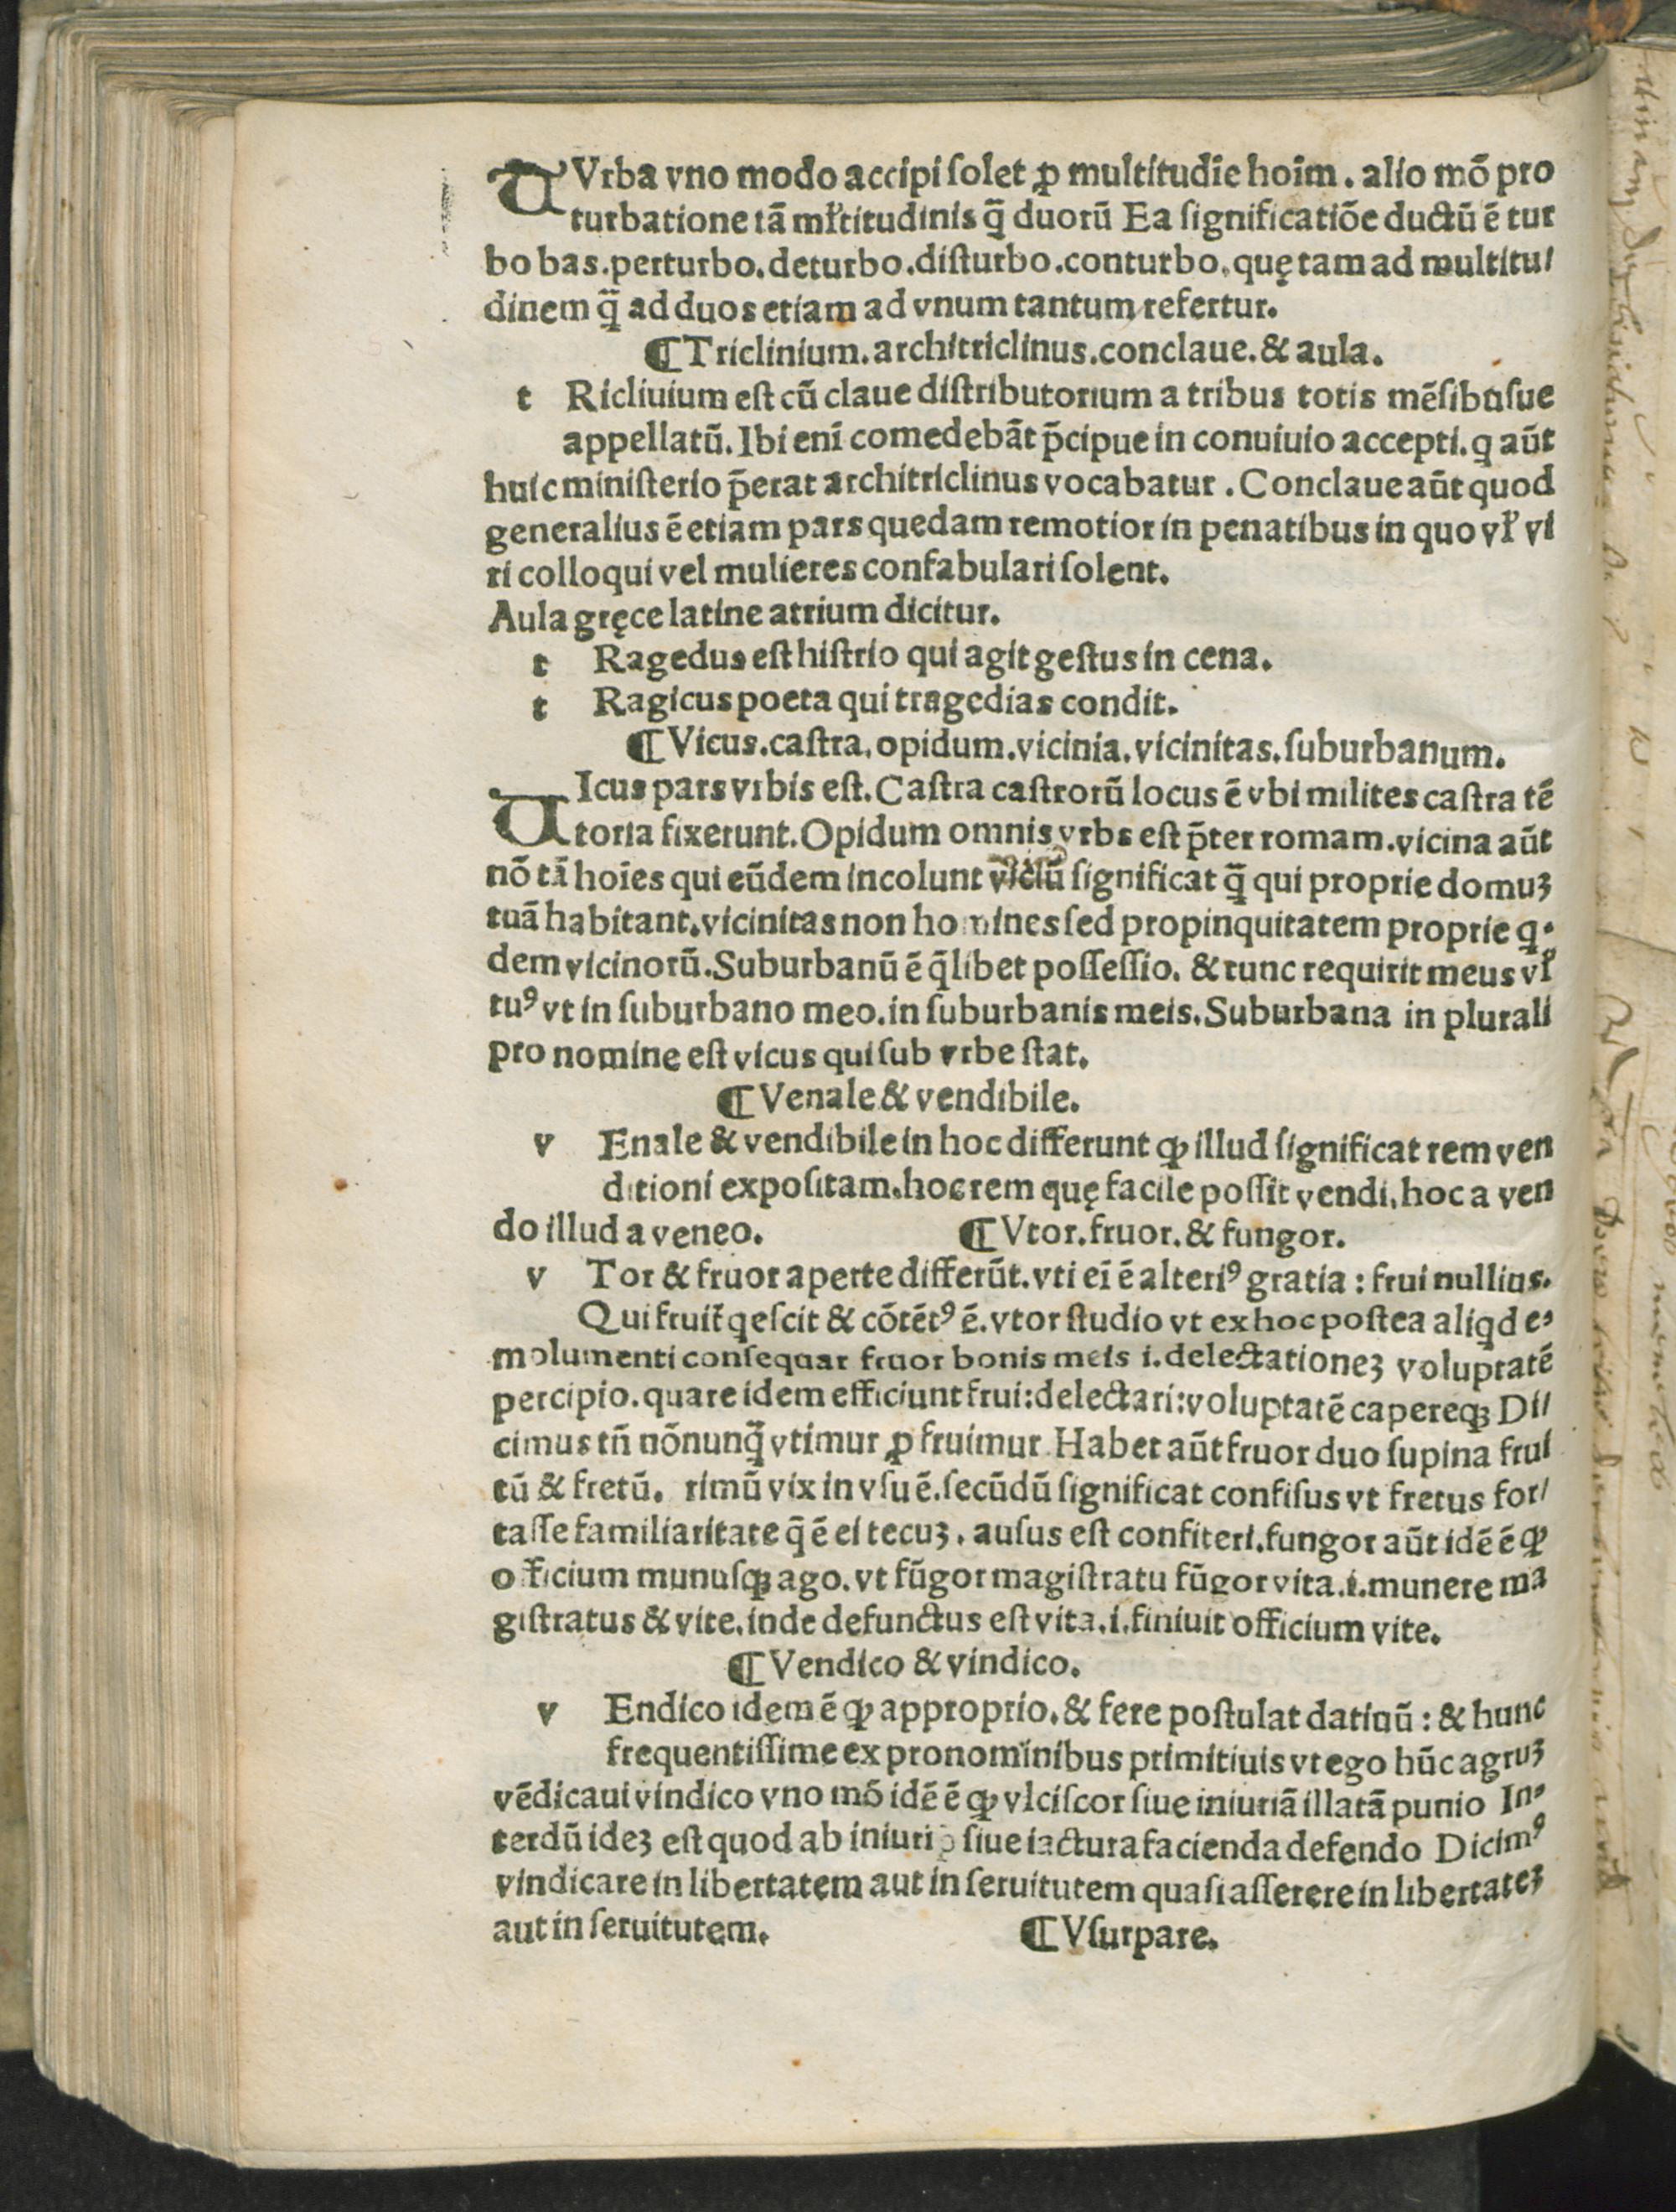 TVrba vno modo accipi ſolet ꝓ multitudīe hoīm. alio mō pro
turbatione tā mr̄titudinis q̄ duorū Ea ſignificatiōe ductū ē tur
bo bas.perturbo.deturbo.diſturbo.conturbo.quę tam ad multitu/
dinem q̄ ad duos etiam ad vnum tantum refertur.
¶Triclinium.architriclinus.conclaue.& aula.
t Ricliuium eſt cū claue diſtributorium a tribus totis mēſibuſue
appellatū.Ibi enī comedebāt p̄cipue in conuiuio accepti.q aūt
huic miniſterio p̄erat architriclinus vocabatur.Conclaue aūt quod
generalius ē etiam pars quedam remotior in penatibus in quo vl̓ vi
ri colloqui vel mulieres confabulari ſolent.
Aula gręce latine atrium dicitur.
t Ragedus eſt hiſtrio qui agit geſtus in cena.
t Ragicus poeta qui tragedias condit.
¶Vicus.caſtra.opidum.vicinia.vicinitas.ſuburbanum.
VIcus pars vrbis eſt.Caſtra caſtrorū locus ē vbi milites caſtra tē
toria fixerunt.Opidum omnis vrbs eſt p̄ter romam.vicina aūt
nō tā hoīes qui eūdem incolunt vicū ſignificat q̄ qui proprie domuꝫ
tuā habitant.vicinitas non homines ſed propinquitatem proprie q·
dem vicinorū.Suburbanū ē q̄libet poſſeſſio.& tunc requirit meus vl̓
tuꝰ vt in ſuburbano meo.in ſuburbanis meis.Suburbana in plurali
pro nomine eſt vicus qui ſub vrbe ſtat.
¶Venale & vendibile.
v Enale & vendibile in hoc differunt ꝙ illud ſignificat rem ven
ditioni expoſitam.hoc rem quę facile poſſit vendi.hoc a ven
do illud a veneo. ¶Vtor.fruor.& fungor.
v Tor & fruor aperte differūt.vti eī ē alteriꝰ gratia : frui nullius.
Qui fruit̓ qeſcit & cōtētꝰ ē.vtor ſtudio vt ex hoc poſtea aliqd e⸗
molumenti conſequar fruor bonis meis i.delectationeꝫ voluptatē
percipio.quare idem efficiunt frui:delectari:voluptatē capereqꝫ Di/
cimus tn̄ nōnunq̄ vtimur ꝓ fruimur Habet aūt fruor duo ſupina frui
tū & fretū. rimū vix in vſu ē.ſecūdū ſignificat confiſus vt fretus for/
taſſe familiaritate q̄ ē ei tecuꝫ.auſus eſt confiteri.fungor aūt idē ē ꝙ
officium munuſqꝫ ago.vt fūgor magiſtratu fūgor vita.i.munere ma
giſtratus & vite.inde defunctus eſt vita.i.finiuit officium vite.
¶Vendico & vindico.
v Endico idem ē ꝙ approprio.& fere poſtulat datiuū : & hunc
frequentiſſime ex pronominibus primitiuis vt ego hūc agruꝫ
vēdicaui vindico vno mō idē ē ꝙ vlciſcor ſiue iniuriā illatā punio In⸗
terdū ideꝫ eſt quod ab iniuri ſiue iactura facienda defendo Dicimꝰ
vindicare in libertatem aut in ſeruitutem quaſi aſſerere in libertateꝫ
aut in ſeruitutem. ¶Vſurpare.